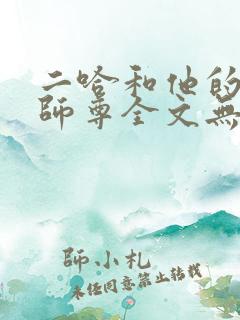 二哈和他的
師尊全文無
師小札
未經同意禁止轉載